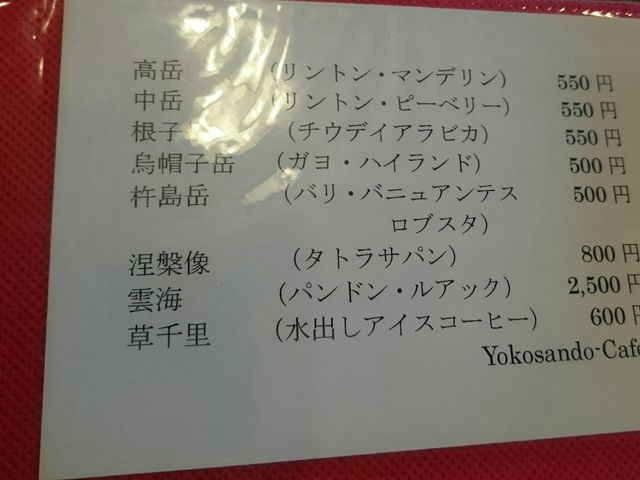 高岳 (リントン・マンデリン) 550円
中岳 (リントン・ピーベリー) 550円
根子 (チウデイアラビカ) 550円
烏帽子岳 (ガヨ・ハイランド) 500円
杵島岳 (バリ・バニュアンテス 500円
ロブスタ)
涅槃像 (タトラサパン) 800円
雲海 (パンドン・ルアック) 2,500円
草千里 (水出しアイスコーヒー) 600円
Yokosando-Cafe